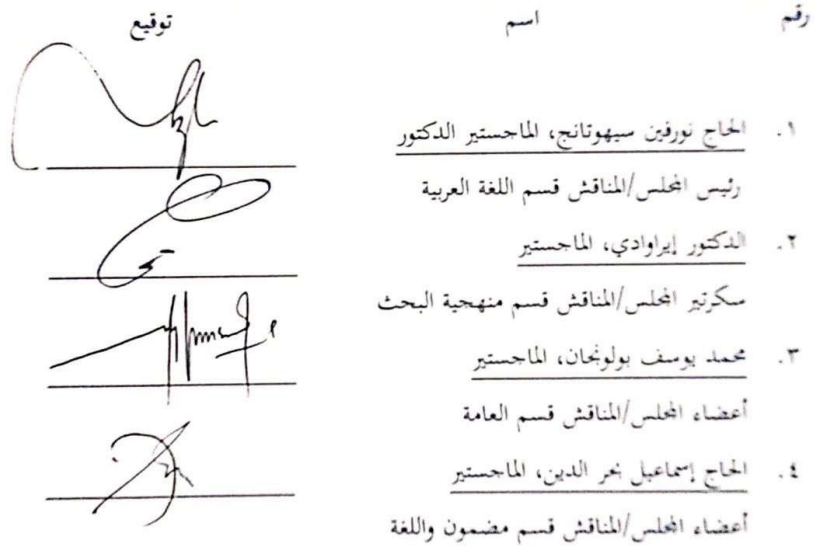 رقم اسم توقيع
١. الحاج نورفين سيهوتانج، الماجستير الدكتور
رئيس المجلس/المناقش قسم اللغة العربية
٢. الدكتور إيراوادي، الماجستير
سكرتير المجلس/المناقش قسم منهجية البحث
٣. محمد يوسف بولونجان، الماجستير
أعضاء المجلس/المناقش قسم العامة
٤. الحاج إسماعيل بحر الدين، الماجستير
أعضاء المجلس/المناقش قسم مضمون واللغة